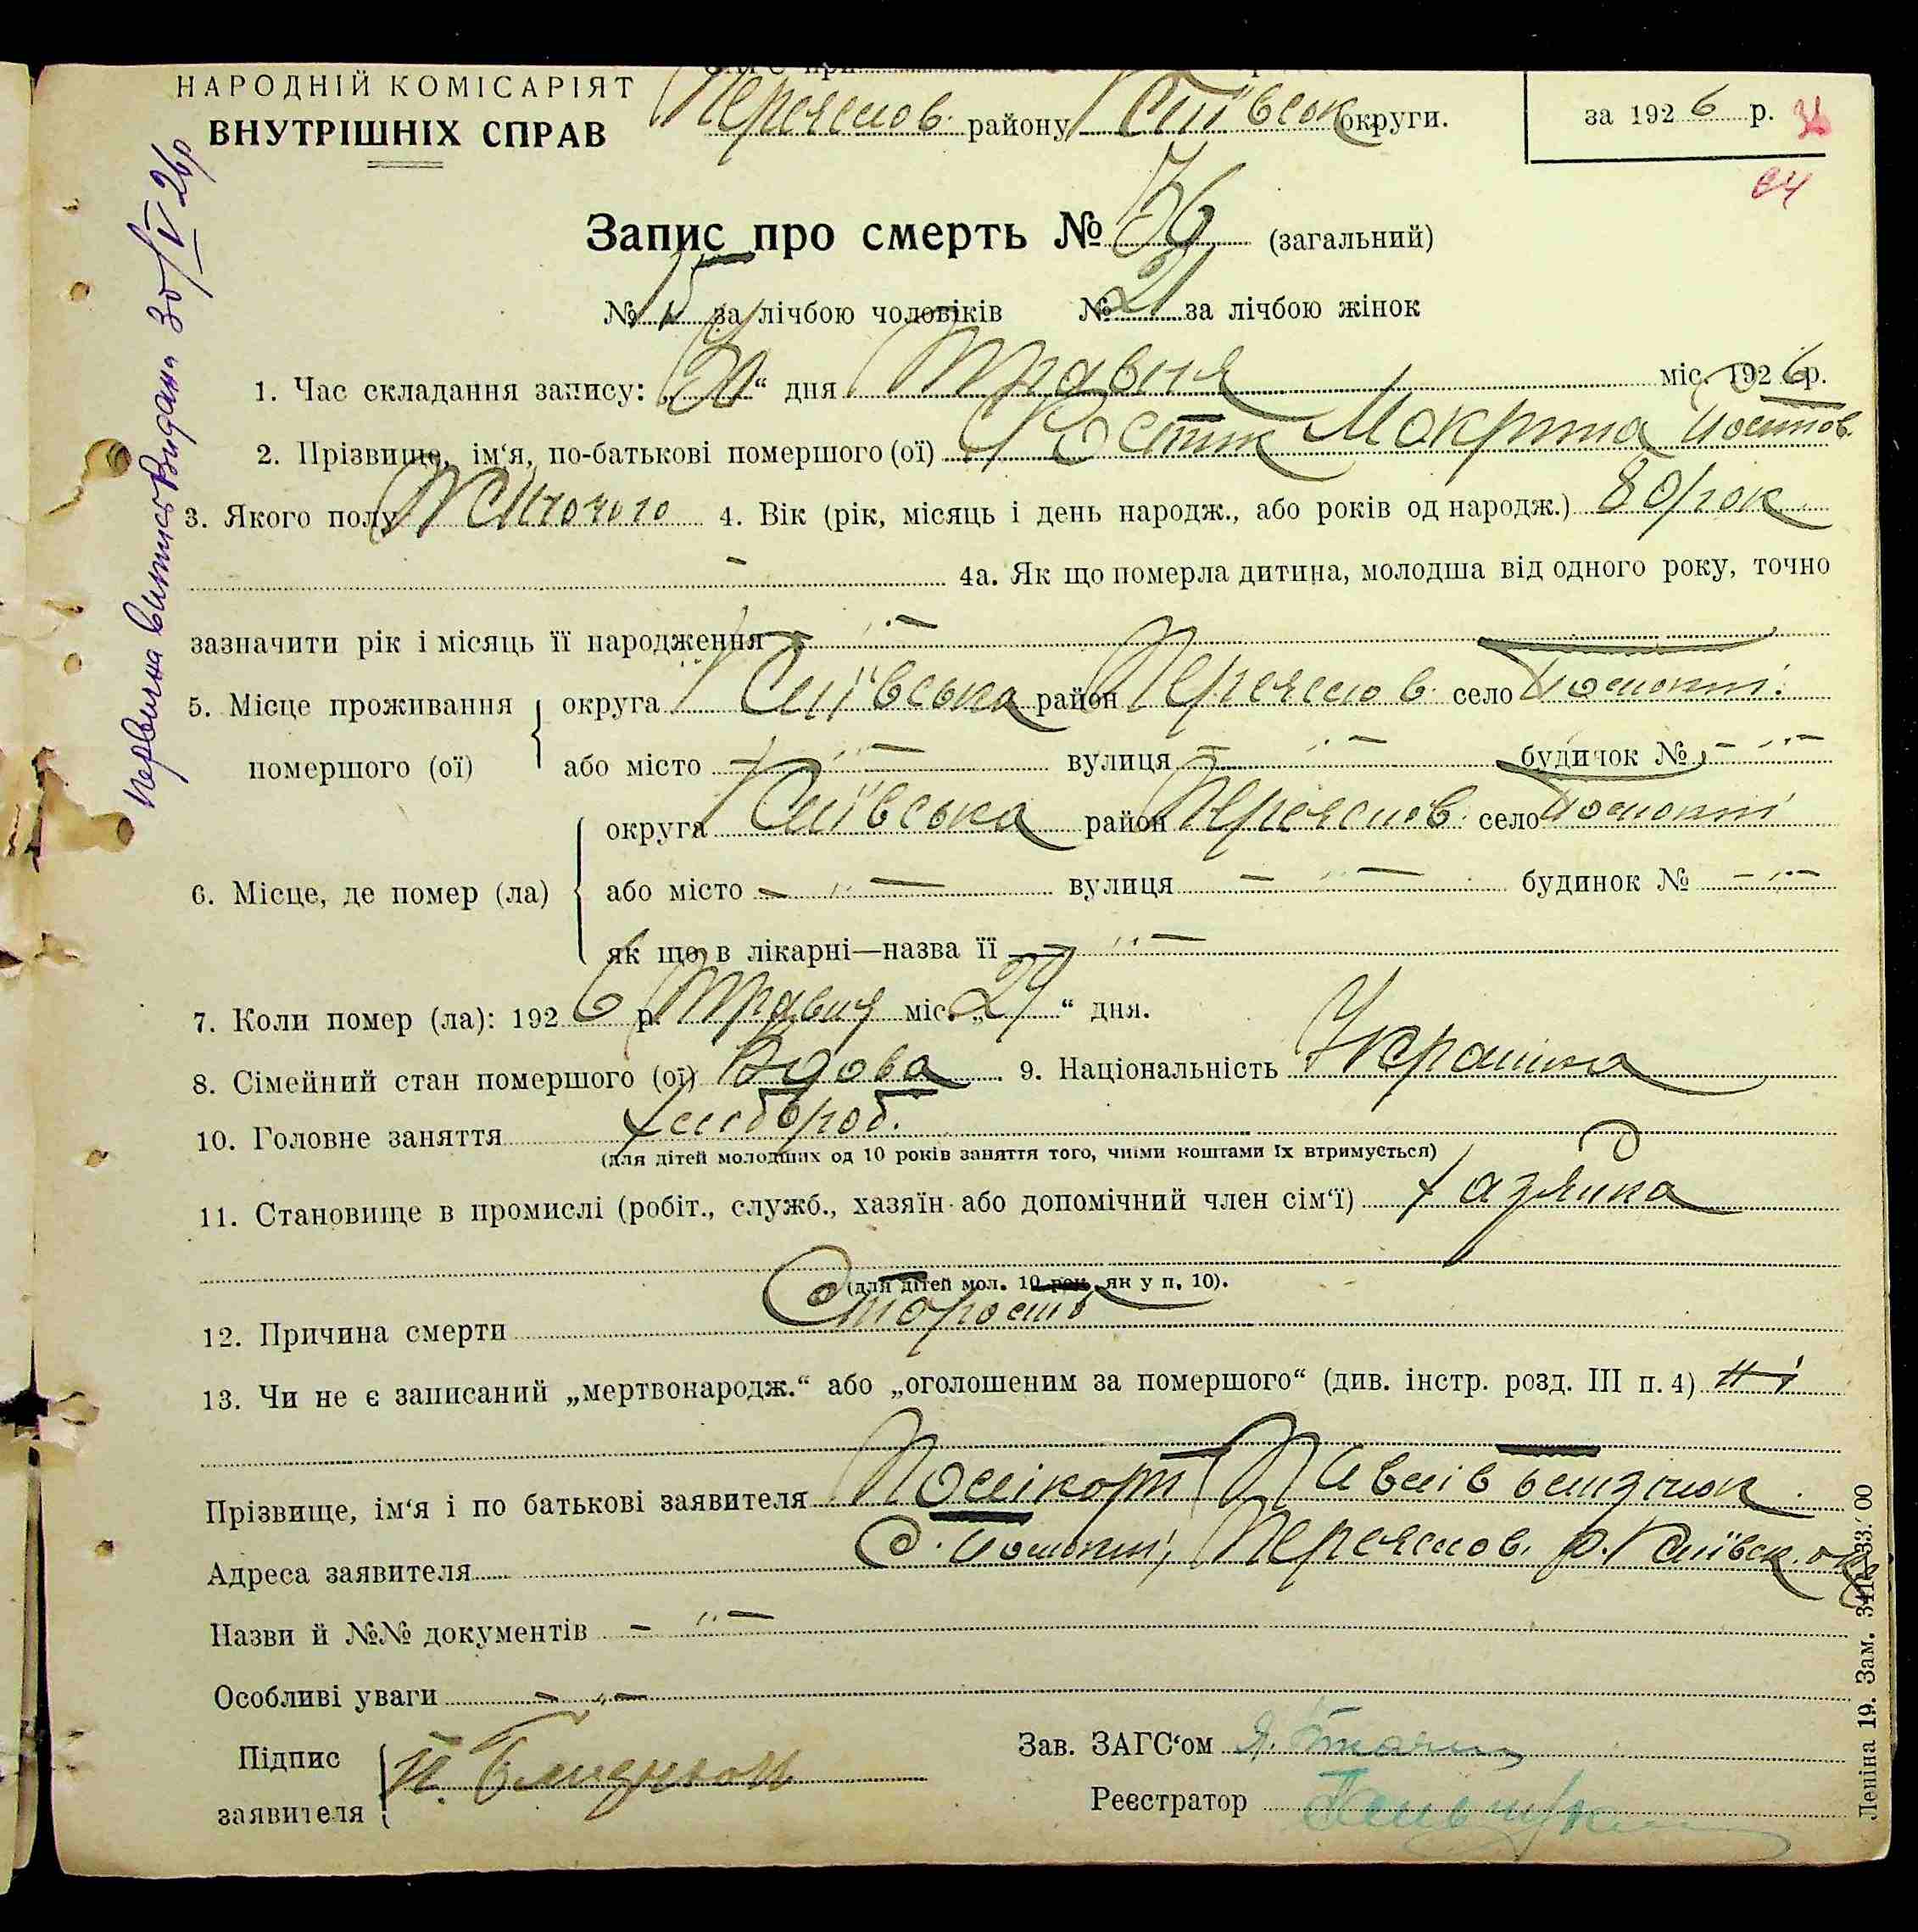 НАРОДНІЙ КОМІСАРІЯТ
ВНУТРІШНІХ СПРАВ
Переяслов. району Київськ округи.
за 1926 р.
Запис про смерть № 36 (загальний)
№ 15 за лічбою чоловіків № 21 за лічбою жінок
1. Час складання запису: „30“ дня Травня міс. 1926 р.
2. Прізвище, ім‘я, по-батькові помершого (ої) Костюк Мокрина
3. Якого полу Жіночого 4. Вік (рік, місяць і день народж., або років од народж.) 80 рок
4а. Як що померла дитина, молодша від одного року, точно
зазначити рік і місяць її народження
5. Місце проживання помершого (ої) округа Київська район Переяслов. село
або місто вулиця будинок №
6. Місце, де помер (ла) округа Київська район Переяслов. село
або місто вулиця будинок №
як що в лікарні—назва її
7. Коли помер (ла): 1926 р. Травня міс. „29“ дня.
8. Сімейний стан помершого (ої) Вдова 9. Національність Украінка
10. Головне заняття Хлібороб.
(для дітей молодших од 10 років заняття того, чиїми коштами їх втримується)
11. Становище в промислі (робіт., служб., хазяїн або допомічний член сім‘ї) Хазяйка
(для дітей мол. 10 рок. як у п. 10).
12. Причина смерти Старость
13. Чи не є записаний „мертвонародж.“ або „оголошеним за помершого“ (див. інстр. розд. III п. 4) ні
Прізвище, ім‘я і по батькові заявителя
Адреса заявителя с. Переяслов. р. Київськ. ок
Назви й №№ документів
Особливі уваги
Підпис заявителя
Зав. ЗАГС‘ом
Реєстратор
Первична виписъ видана 30/V 26р
Леніна 19. Зам.